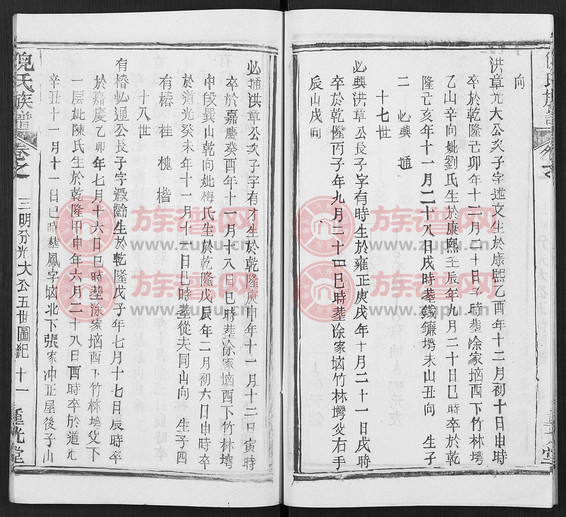 向
洪章光大公次子字道文生於康熙乙酉年十二月初十日申時
卒於乾隆己卯年十一月二十日子時葬涂家㘭酉下竹林塆
乙山辛向妣劉氏生於康熙壬辰年八月二十日巳時卒於乾
隆己亥年十一月二十八日戌時葬鐵鐮塆未山丑向 生子
二 必興 必通
十七世
必興洪章公長子字有時生於雍正庚戌年十二月二十一日戌時
卒於乾隆丙子年九月二十二日巳時葬涂家㘭竹林塆父右手
辰山戌向
必通洪章公次子字有才生於乾隆庚申年十一月十二日寅時
卒於嘉慶癸酉年十一月十八日巳時葬涂家㘭酉下竹林塆
中段巽山乾向妣梅氏生於乾隆戊辰年二月初六日申時卒
於道光癸未年十一月十一日巳時葬從夫同山向 生子四
有椿 桂 槐 楷
十八世
有椿必通公長子字 生於乾隆戊子年七月十七日辰時卒
於嘉慶乙卯年七月十六日巳時葬涂家㘭酉下竹林塆父下
一層妣陳氏生於乾隆甲申年六月二十八日酉時卒於道光
辛丑十一月十一日巳時葬鳳字㘭北下張家冲正屋後子山
倪氏族譜 卷之 三明分光大公五世圖紀 十一 重光堂
族谱网
zupu.cn